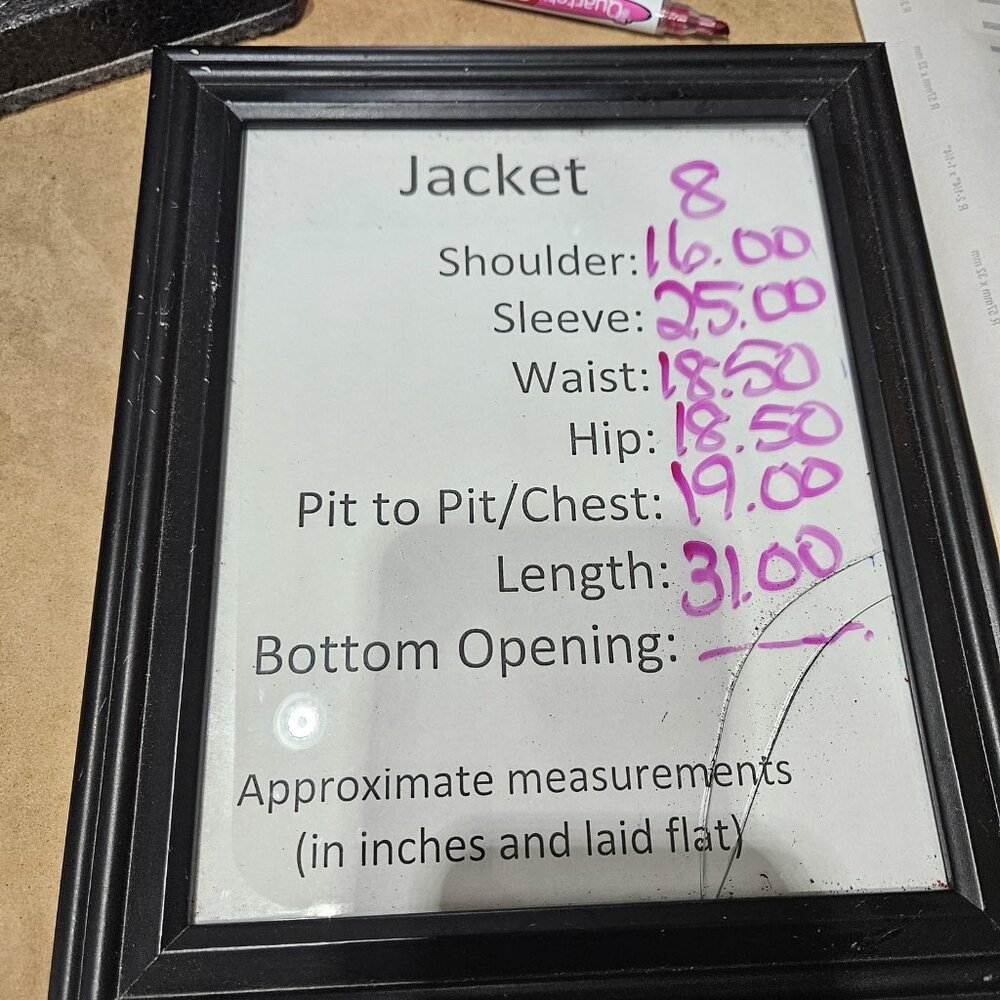 Quartet
Jacket 8
Shoulder: 16.00
Sleeve: 25.00
Waist: 18.50
Hip: 18.50
Pit to Pit/Chest: 19.00
Length: 31.00
Bottom Opening: —.
Approximate measurements
(in inches and laid flat)